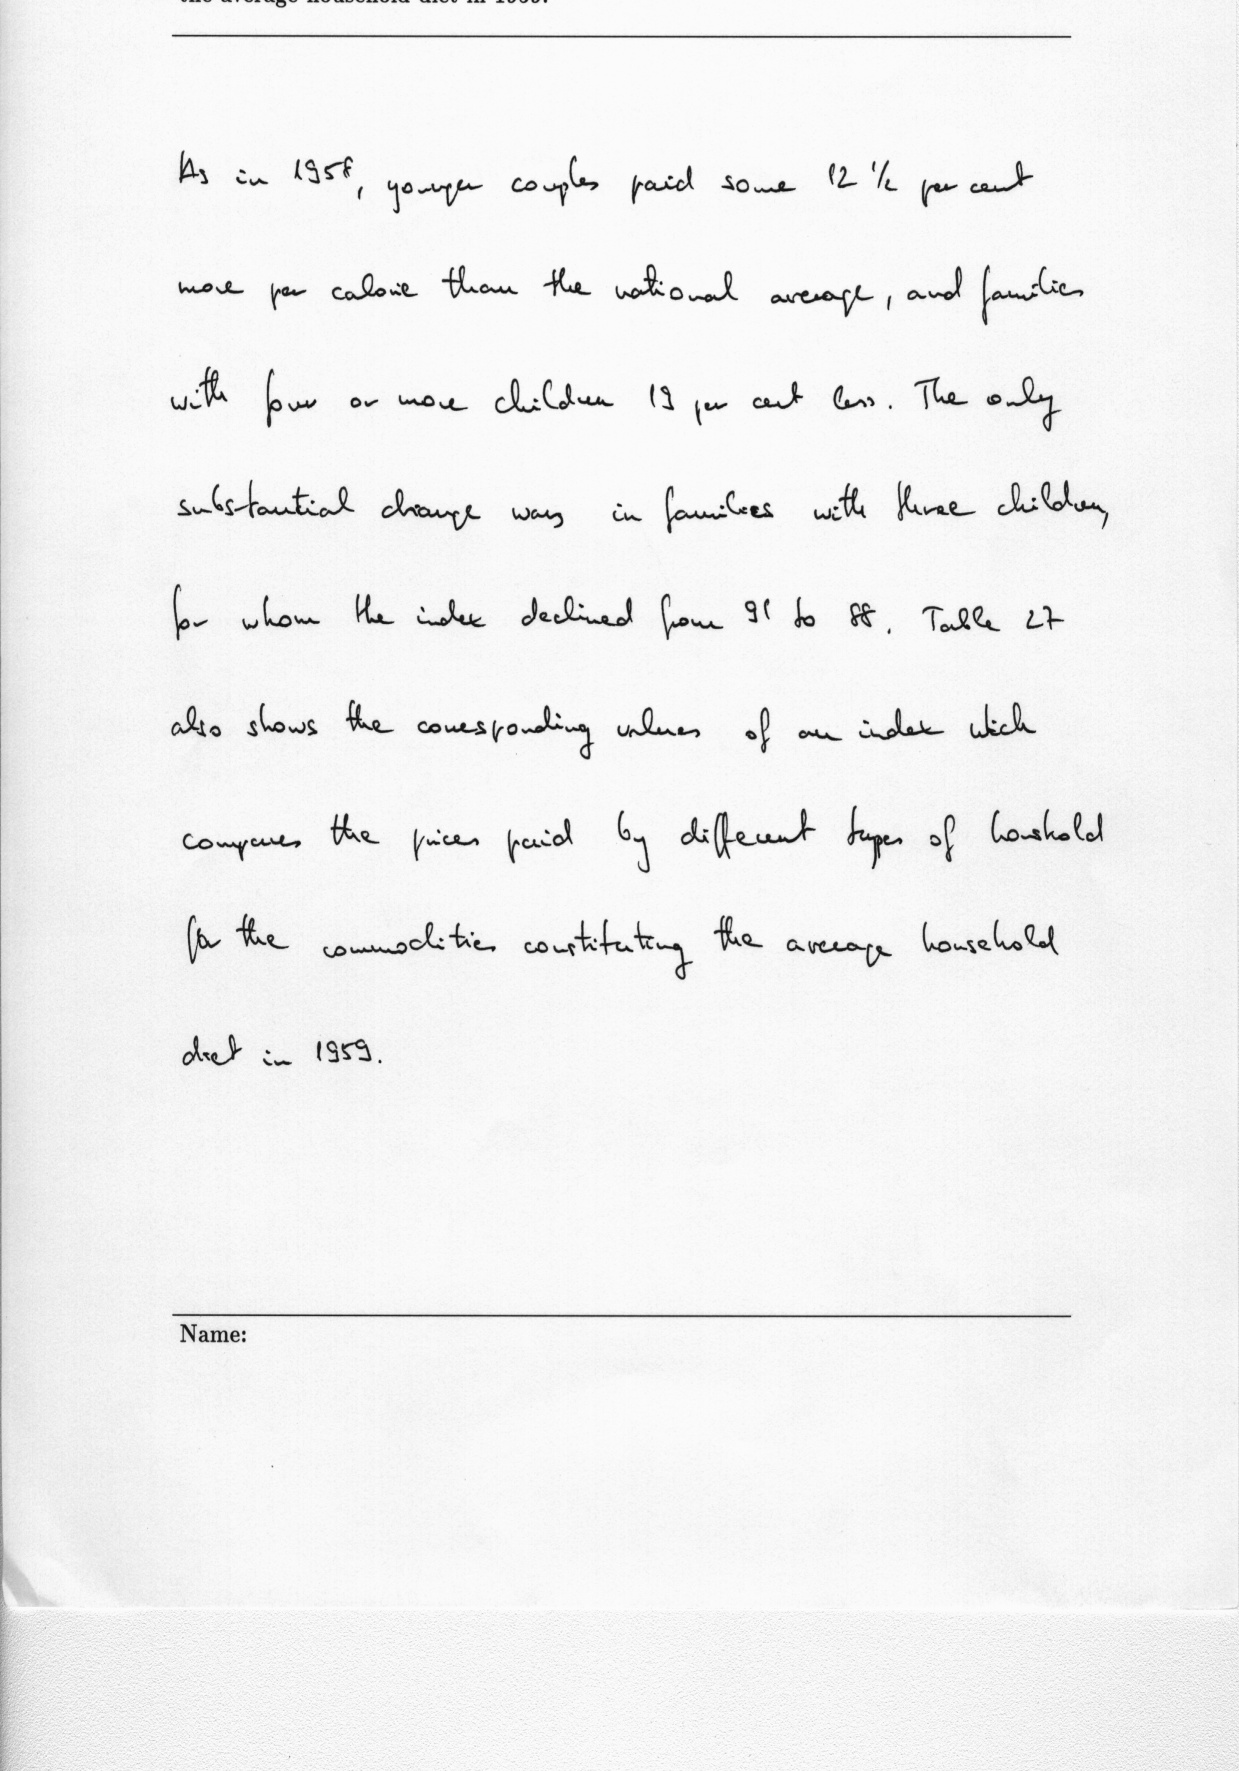 the average household diet in 1959.
As in 1958, younger couples paid some 12 1/2 per cent
more per calorie than the national average, and families
with four or more children 19 per cent less. The only
substantial change was in families with three children,
for whom the index declined from 91 to 88. Table 27
also shows the corresponding values of an index wich
compares the prices paid by different types of houshold
for the commodities constituting the average household
diet in 1959.
Name: